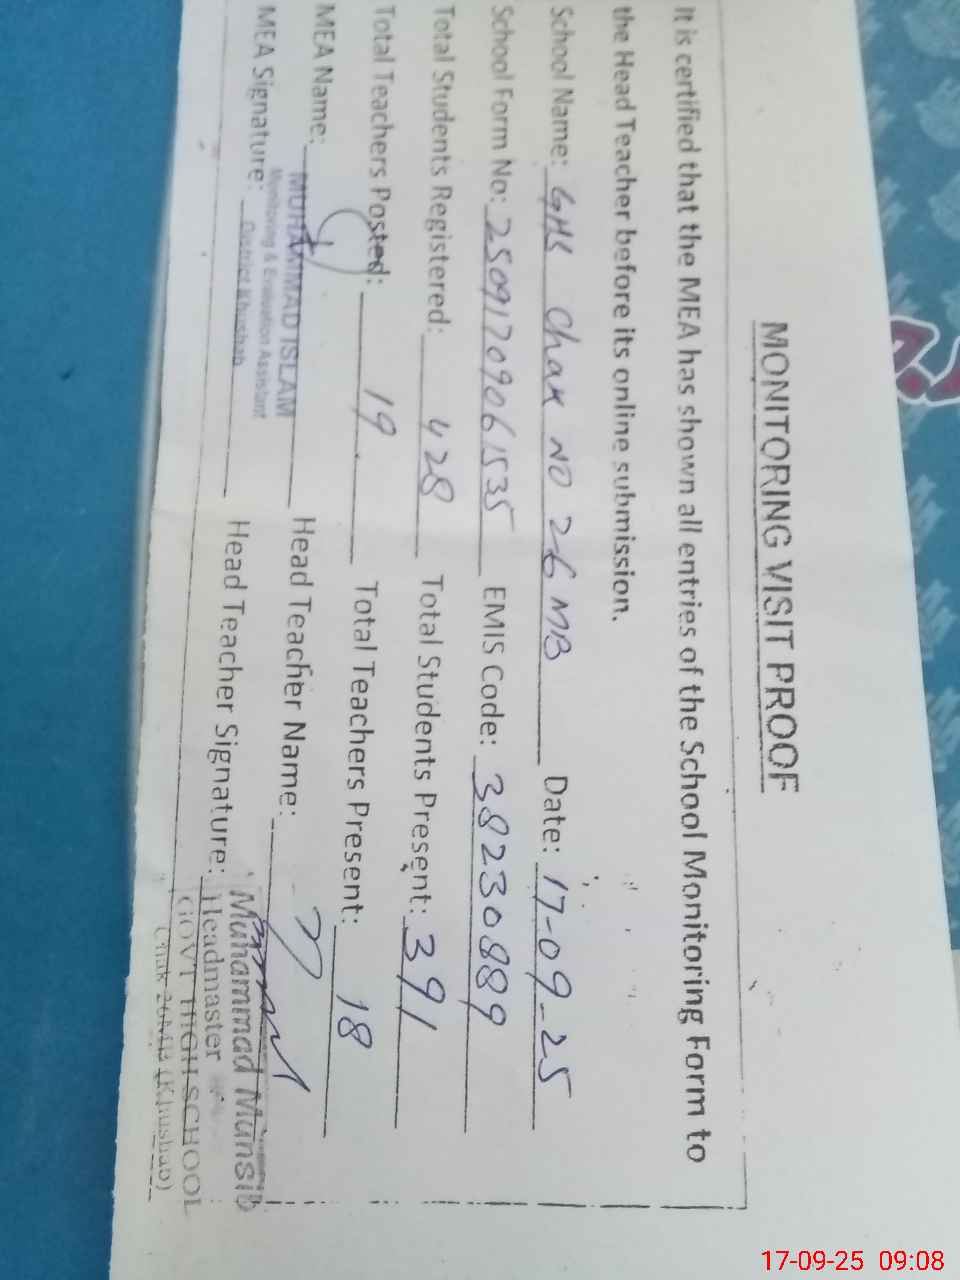 MONITORING VISIT PROOF
It is certified that the MEA has shown all entries of the School Monitoring Form to
the Head Teacher before its online submission.
School Name: GHS Chak NO 26 MB Date: 17-09-25
School Form No: 25091709061535 EMIS Code: 38230889
Total Students Registered: 428 Total Students Present: 391
Total Teachers Posted: 19 Total Teachers Present: 18
MEA Name: MUHAMMAD ISLAM Head Teacher Name:
Monitoring & Evaluation Assistant
District Khushab
MEA Signature: Head Teacher Signature:
Muhammad Munsib
Headmaster
GOVT HIGH SCHOOL
Chak 26MB (Khushab)
17-09-25 09:08